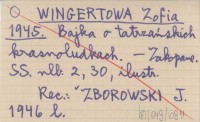 WINGERTOWA Zofia
1945. Bajka o tatrzańskich
krasnoludkach. – Zakopane.
SS. nlb. 2, 30, ilustr.
Rec.: ZBOROWSKI J.
1946 l.